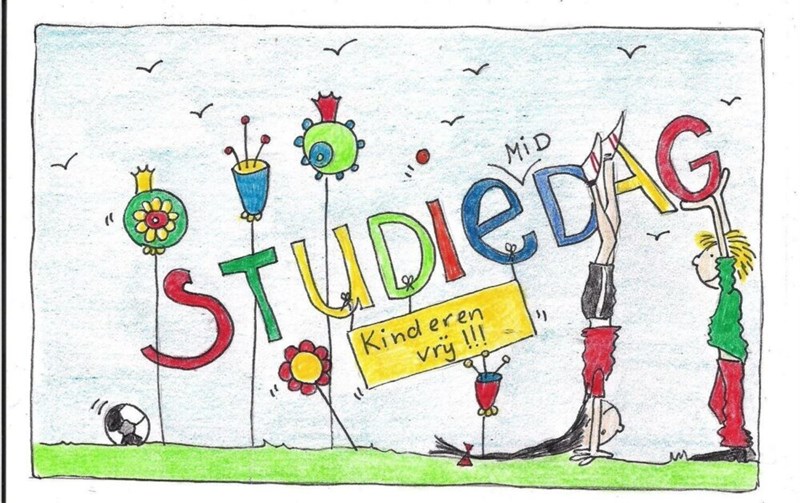 MiD
STUDIEDAG
Kinderen
vrij!!!